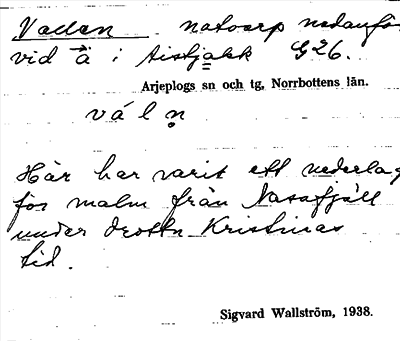 Vallen
vid å i
Arjeplogs sn och tg, Norrbottens län.
v á l n̥
Här har varit ett nederlag
för malm från Nasafjäll
under drottn Kristinas
tid.
Sigvard Wallström, 1938.